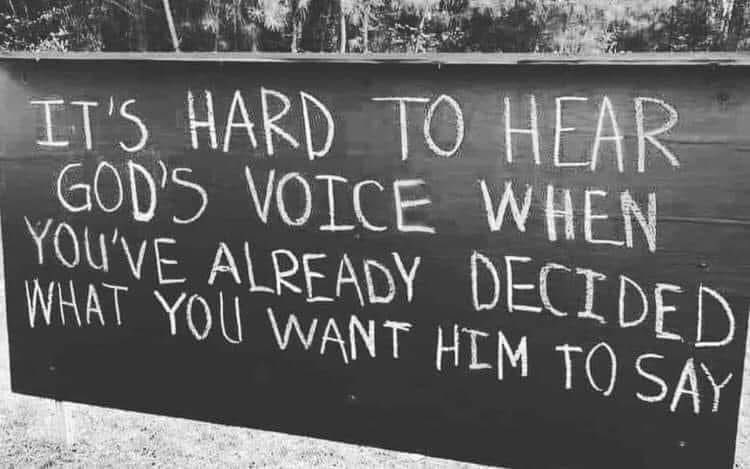 IT'S HARD TO HEAR
GOD'S VOICE WHEN
YOU'VE ALREADY DECIDED
WHAT YOU WANT HIM TO SAY